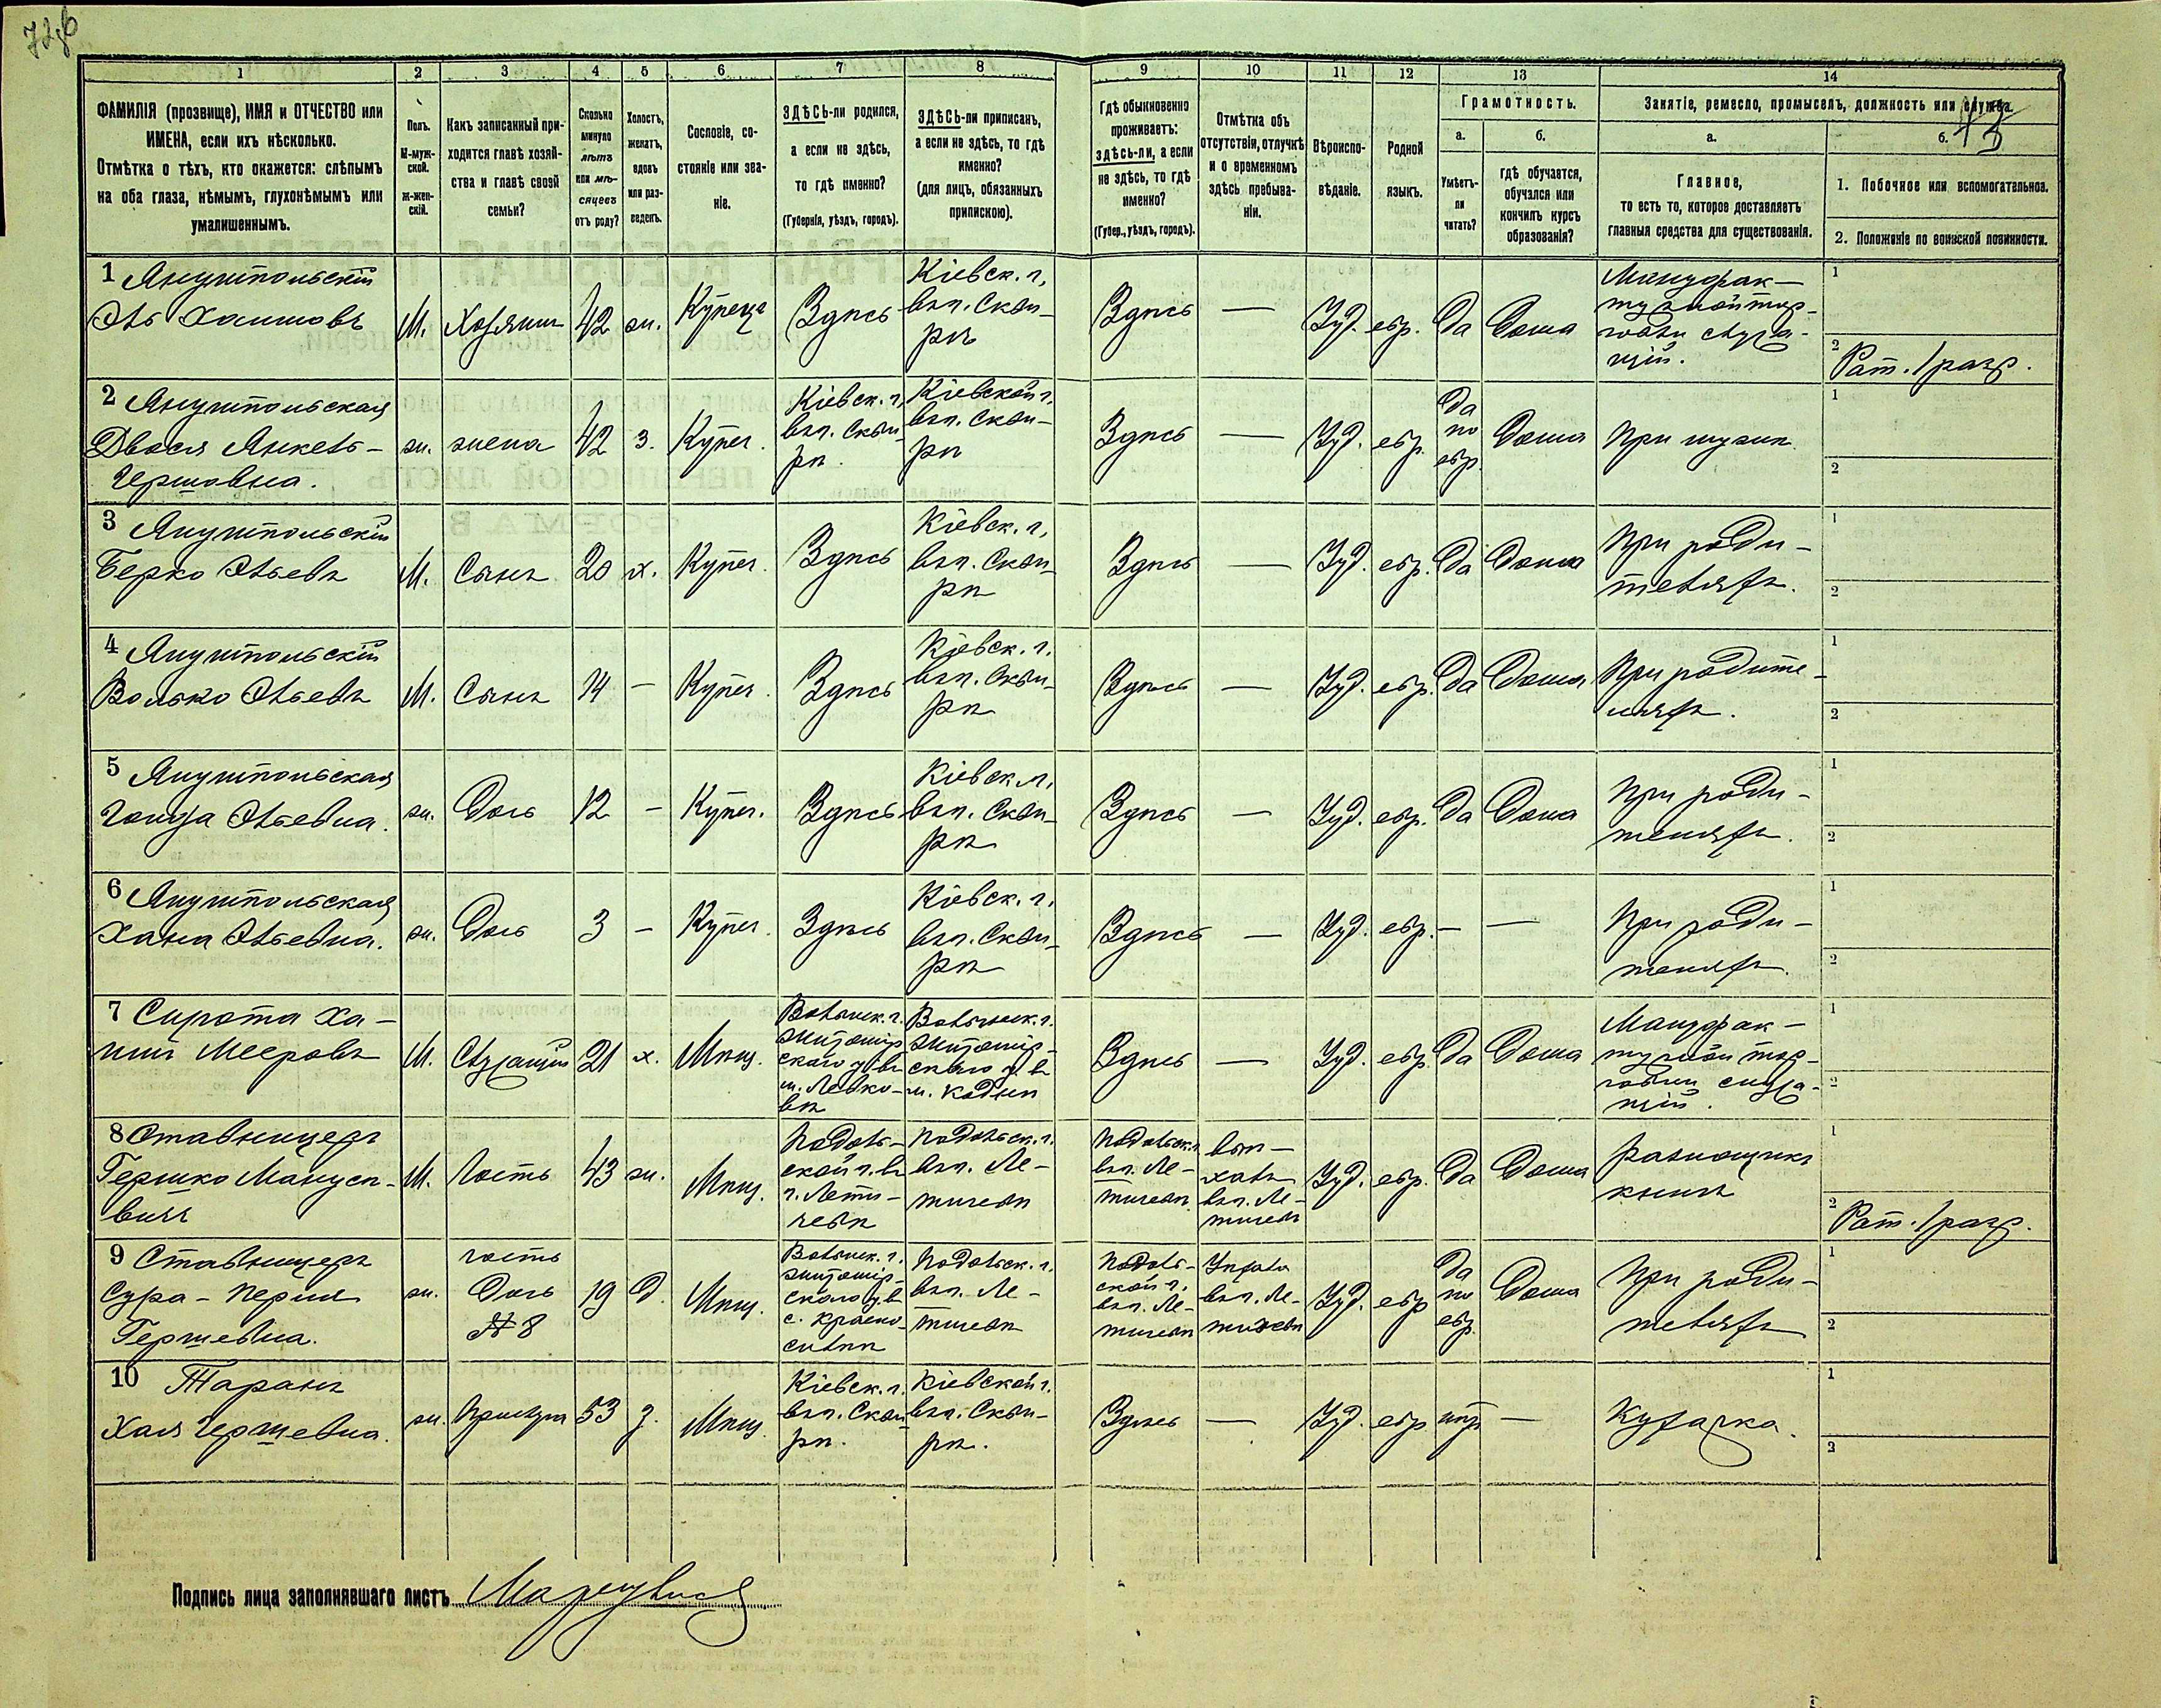 72об
1 2 3 4 5 6 7 8 9 10 11 12 13 14
ФАМИЛІЯ (прозвище), ИМЯ и ОТЧЕСТВО или
ИМЕНА, если ихъ нѣсколько.
Отмѣтка о тѣхъ, кто окажется: слѣпымъ
на оба глаза, нѣмымъ, глухонѣмымъ или
умалишеннымъ.
Полъ.
М-муж-
ской.
Ж-жен-
скій.
Какъ записанный при-
ходится главѣ хозяй-
ства и главѣ своей
семьи?
Сколько
минуло
лѣтъ
или мѣ-
сяцевъ
отъ роду?
Холостъ,
женатъ,
вдовъ
или раз-
веденъ.
Сословіе, со-
стояніе или зва-
ніе.
ЗДѢСЬ-ли родился,
а если не здѣсь,
то гдѣ именно?
(Губернія, уѣздъ, городъ).
ЗДѢСЬ-ли приписанъ,
а если не здѣсь, то гдѣ
именно?
(для лицъ, обязанныхъ
припискою).
Гдѣ обыкновенно
проживаетъ:
здѣсь-ли, а если
не здѣсь, то гдѣ
именно?
(Губер., уѣздъ, городъ).
Отмѣтка объ
отсутствіи, отлучкѣ
и о временномъ
здѣсь пребыва-
ніи.
Вѣроиспо-
вѣданіе.
Родной
языкъ.
Грамотность.
а.
Умѣетъ-
ли
читать?
б.
гдѣ обучается,
обучался или
кончилъ курсъ
образованія?
Занятіе, ремесло, промыселъ, должность или служба.
а.
Главное,
то есть то, которое доставляетъ
главныя средства для существованія.
б.
1. Побочное или вспомогательное.
2. Положеніе по воинской повинности.
1 Янушпольскій
Эль Хаимовъ
М.
Хозяинъ
42
ж.
Купецъ
Здѣсь
Кіевск. г.
въ г. Скви-
рѣ
Здѣсь
—
Іуд.
евр.
Да
Дома
Мануфак-
турной тор-
говли служа-
щій.
1
2 Рат. 1 разр.
2 Янушпольская
Двося Янкель-
Гершовна.
ж.
жена
42
з.
Купеч.
Кіевск. г.
въ г. Скви-
рѣ.
Кіевской г.
въ г. Скви-
рѣ
Здѣсь
—
Іуд.
евр.
Да
по
евр.
Дома
При мужѣ.
1
2
3 Янушпольскій
Берко Эльевъ
М.
Сынъ
20
х.
Купеч.
Здѣсь
Кіевск. г.
въ г. Скви-
рѣ
Здѣсь
—
Іуд.
евр.
Да
Дома
При роди-
теляхъ.
1
2
4 Янушпольскій
Волько Эльевъ
М.
Сынъ
14
—
Купеч.
Здѣсь
Кіевск. г.
въ г. Скви-
рѣ
Здѣсь
—
Іуд.
евр.
Да
Дома
При родите-
ляхъ.
1
2
5 Янушпольская
Эльевна.
ж.
Дочь
12
-
Купеч.
Здѣсь
Кіевск. г.
въ г. Скви-
рѣ
Здѣсь
—
Іуд.
евр.
Да
Дома
При роди-
теляхъ.
1
2
6 Янушпольская
Хана Эльевна.
ж.
Дочь
3
-
Купеч.
Здѣсь
Кіевск. г.
въ г. Скви-
рѣ
Здѣсь
—
Іуд.
евр.
—
—
При роди-
теляхъ.
1
2
7 Сирота Ха-
Мееровъ
М.
Служащій
21
х.
Мѣщ.
Волынск. г.
Житомір
скаго у. въ
м. Левко-
вѣ
Волынск. г.
Житомір-
скаго у. въ
м. Коднѣ
Здѣсь
—
Іуд.
евр.
Да
Дома
Мануфак-
турной тор-
говли служа-
щій.
1
2
8 Ставницеръ
Гершко Манусо-
вичъ
М.
Гость
43
ж.
Мѣщ.
Подоль-
ской г. въ
г. Лети-
чевѣ
Подольск. г.
въ г. Ле-
тичевѣ
Подольск. г.
въ г. Ле-
тичевѣ
вы-
халъ
въ г. Ле-
тичевъ
Іуд.
евр.
Да
Дома
разнощикъ
книгъ
1
2 Рат. 1 разр.
9 Ставницеръ
Сура-Перля
Гершевна.
ж.
гость
Дочь
№ 8
19
д.
Мѣщ.
Волынск. г.
Житомір-
скаго у. в
с. Красно-
силкѣ
Подольск. г.
въ г. Ле-
тичевѣ
Подоль-
ской г.
въ г. Ле-
тичевѣ
Уѣхала
въ г. Ле-
тичевъ
Іуд.
евр
Да
по
евр.
Дома
При роди-
теляхъ
1
2
10 Таранъ
Хая Гершевна.
ж.
Прислуга
53
Мѣщ.
Кіевск. г.
въ г. Скви
рѣ.
Кіевской г.
въ г. Скви-
рѣ.
Здѣсь
—
Іуд.
евр
нѣтъ
—
Кухарка.
1
2
Подпись лица заполнявшаго листъ